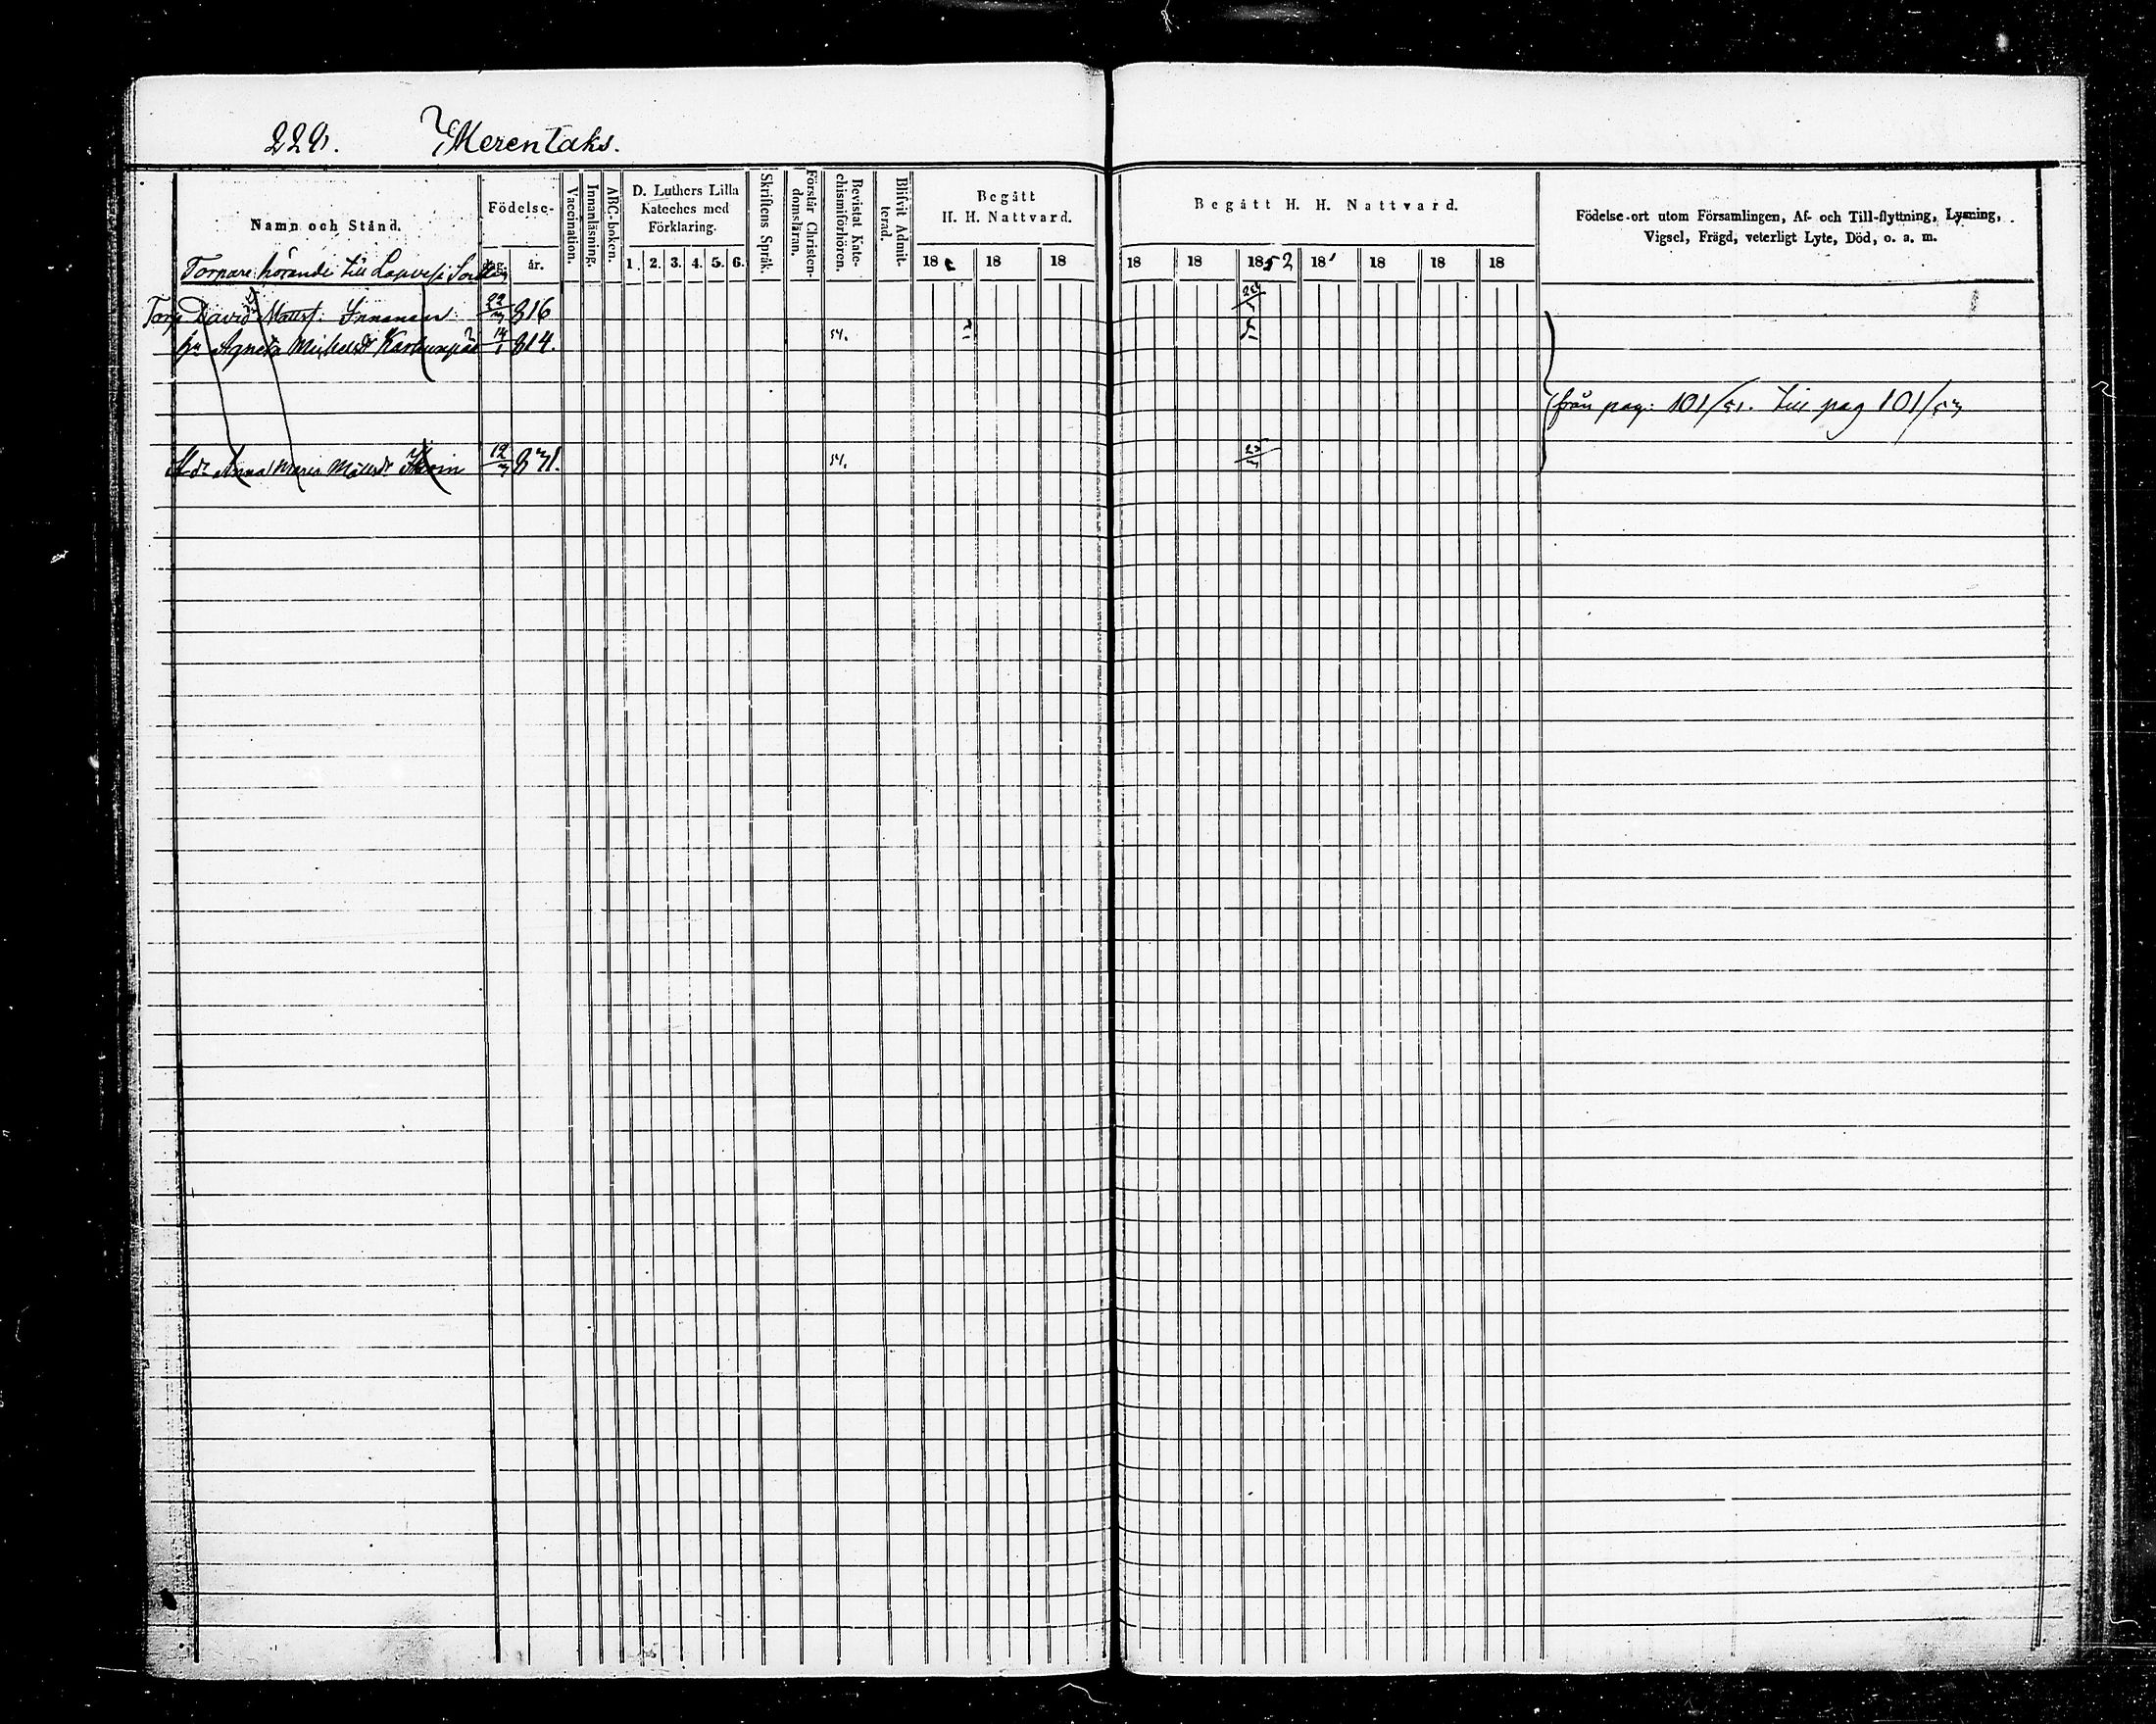 229. Merentaks.
Namn och Stånd.
Födelse-
dag. år.
Vaccination.
Innanläsning.
ABC-boken.
D. Luthers Lilla
Kateches med
Förklaring.
1. 2. 3. 4. 5. 6.
Skriftens Språk.
Förstår Christen-
domsläran.
Bevistat Kate-
chismiförhören.
Blifvit Admit-
terad.
Begått
H. H. Nattvard.
18 18 18
Begått H. H. Nattvard.
18 18 1852 18 18 18 18
Födelse-ort utom Församlingen, Af- och Till-flyttning, Lysning,
Vigsel, Frägd, veterligt Lyte, Död, o. a. m.
Torpare hörande till
Torp David Mattsf. Innanen 22/3 816
hu Agneta Michelsdr 14/1 814. 54.
från pag: 101/51. till pag 101/53
Anna Maria Mattsdr 12/3 831. 54.